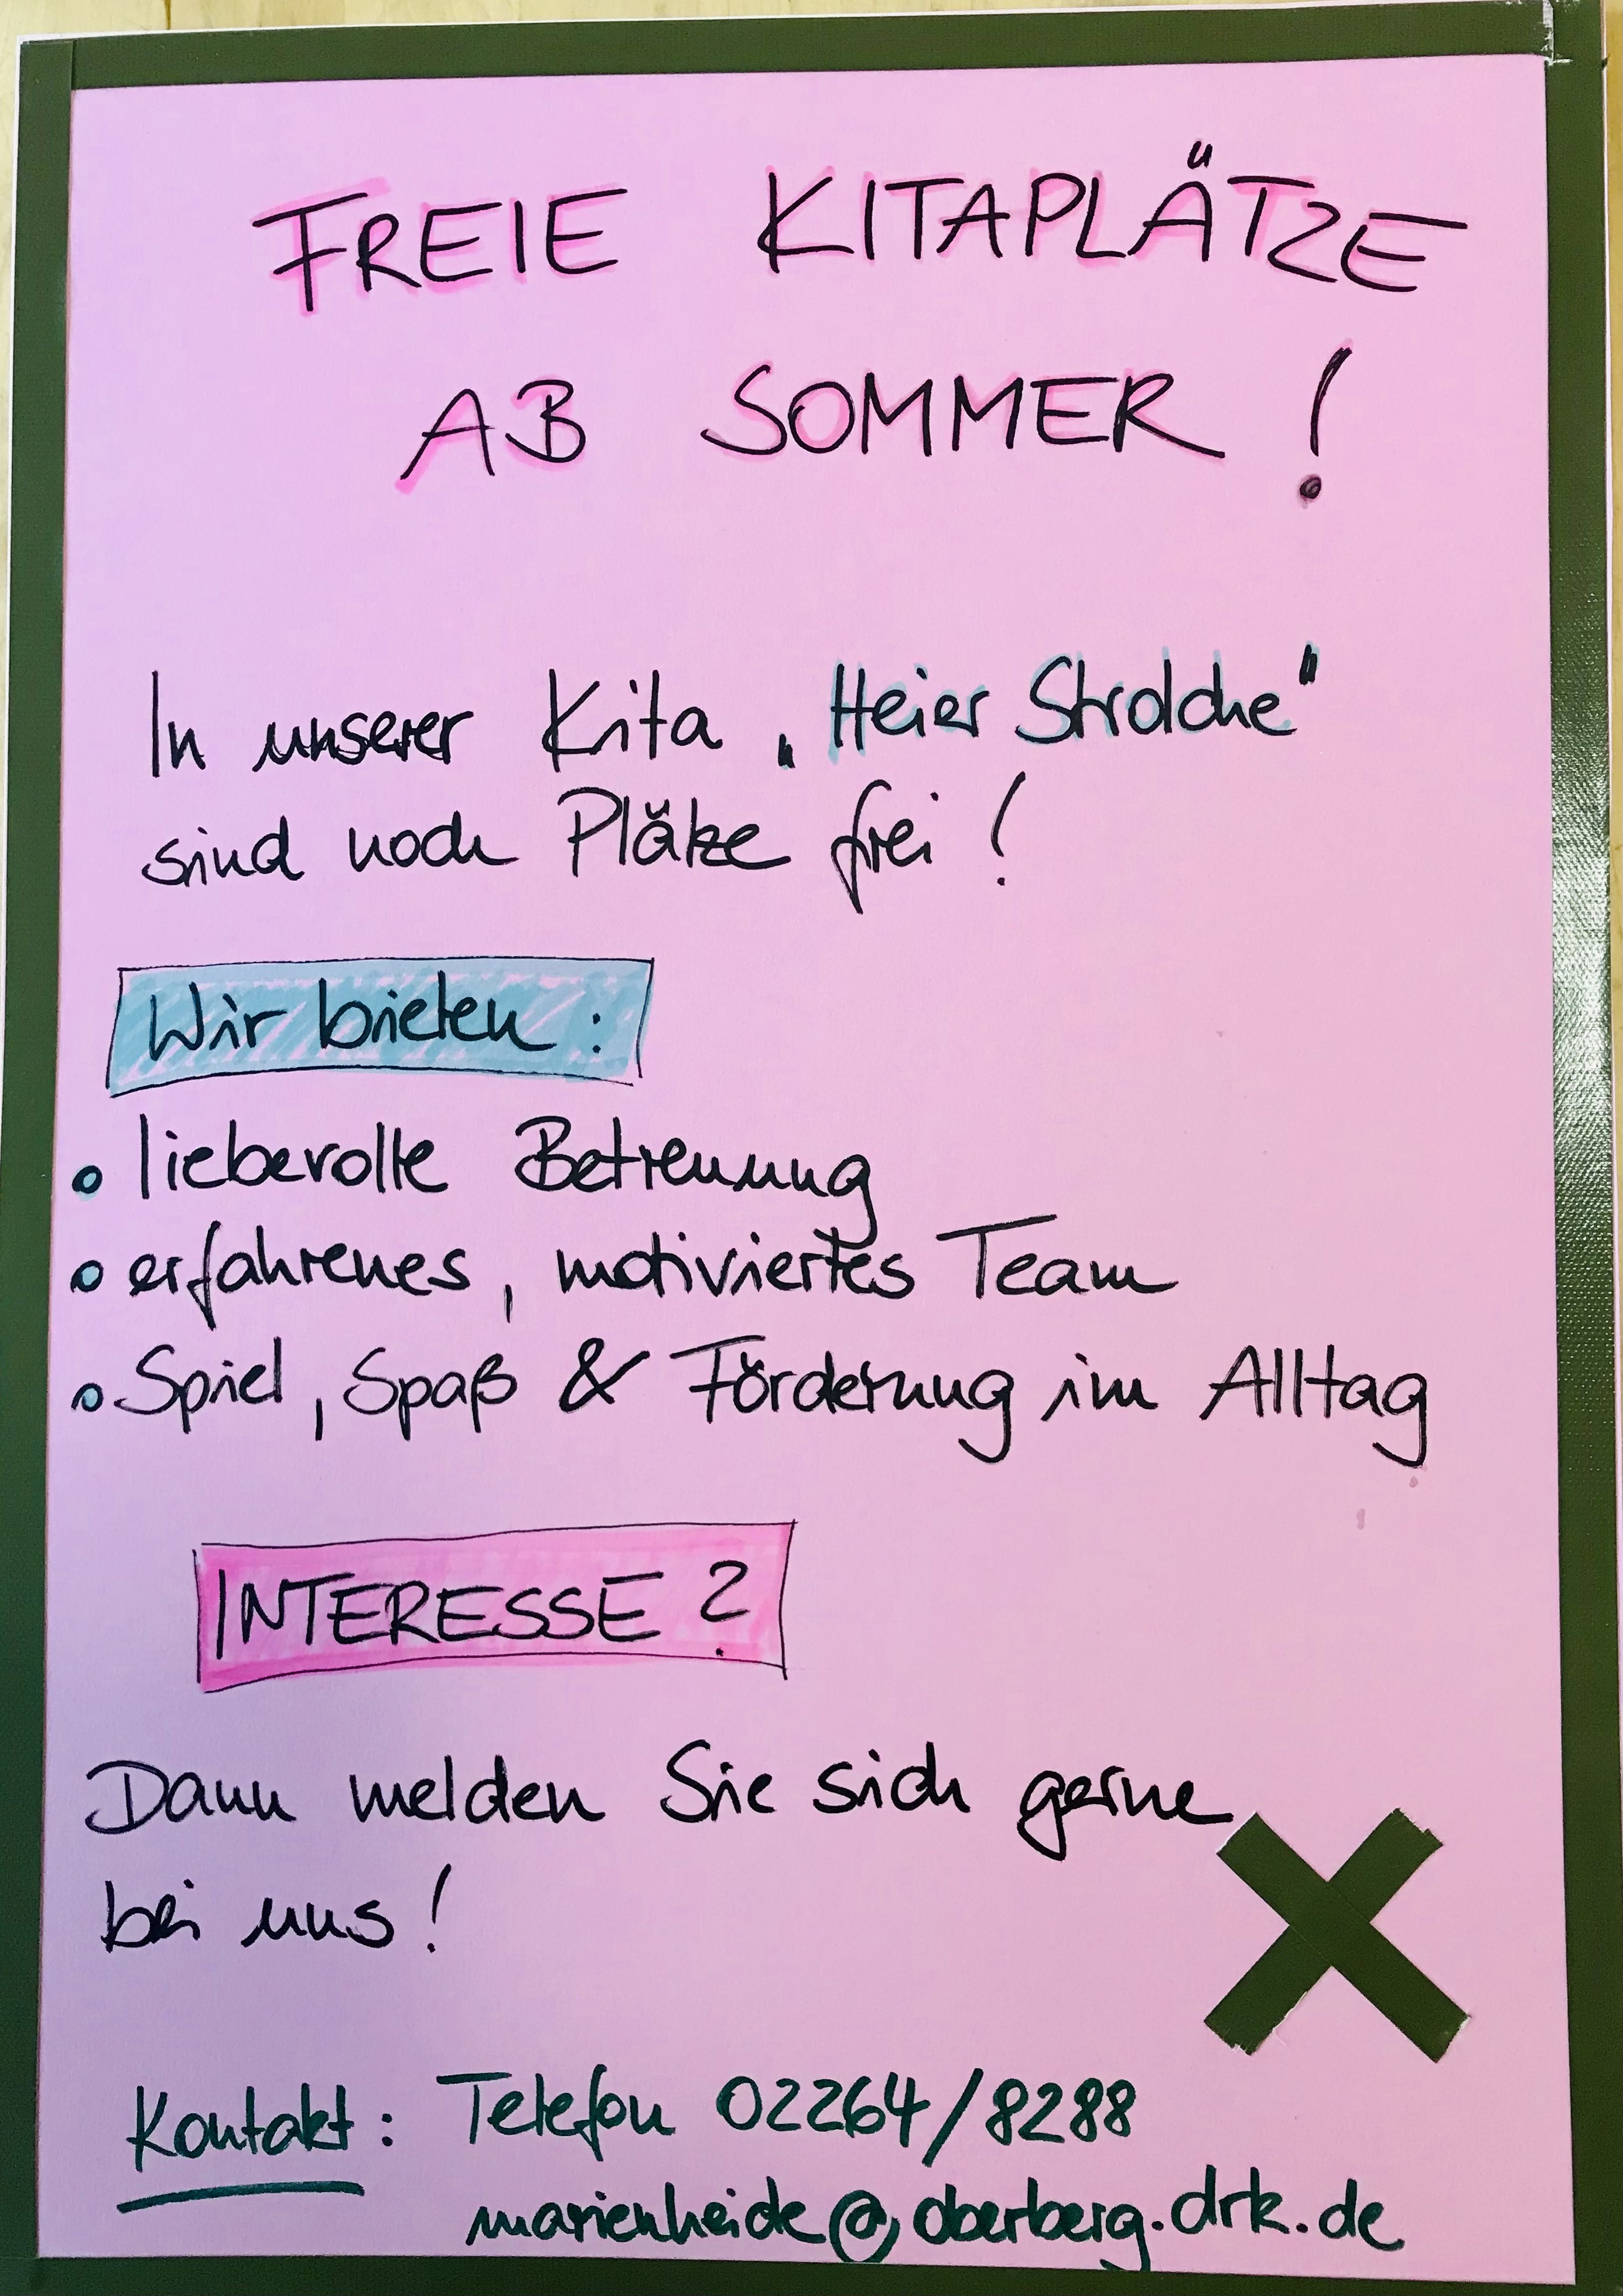 FREIE KITAPLÄTZE
AB SOMMER!
In unserer Kita „Heier Strolche“
sind noch Plätze frei!
Wir bieten:
• liebevolle Betreuung
• erfahrenes, motiviertes Team
• Spiel, Spaß & Förderung im Alltag
INTERESSE?
Dann melden Sie sich gerne
bei uns!
Kontakt: Telefon 02264/8288
marienheide@oberberg.drk.de